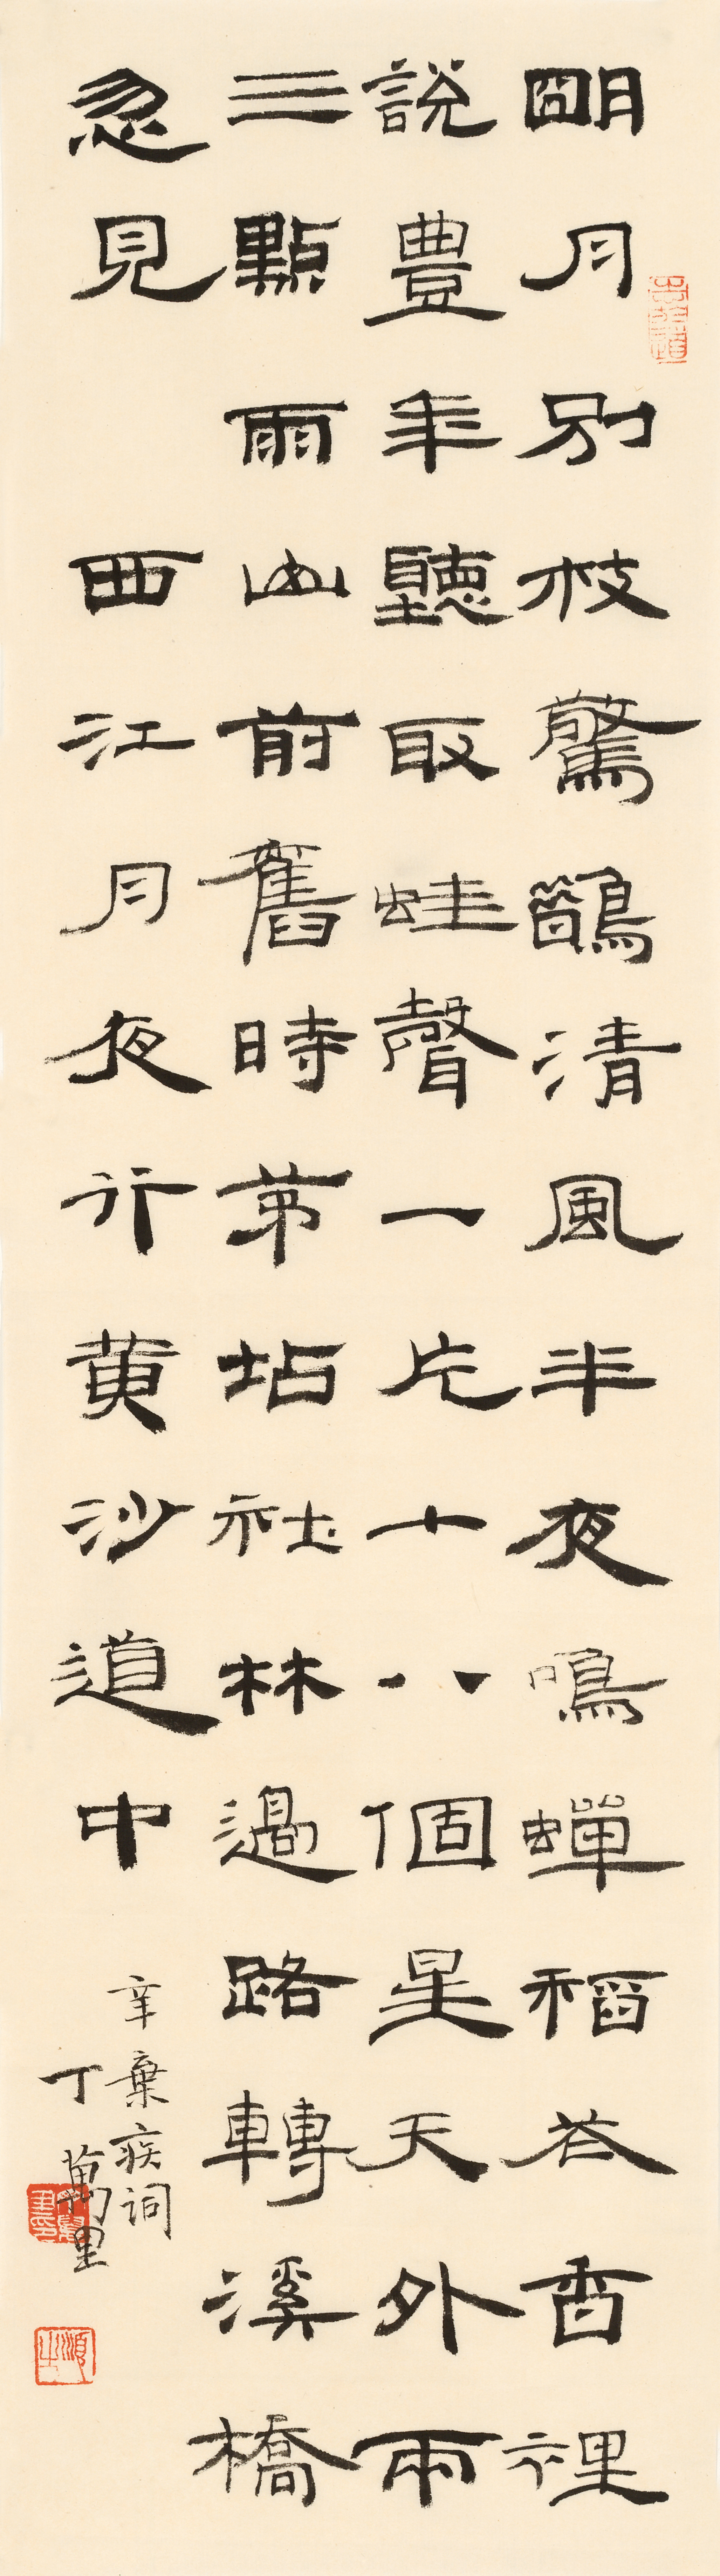 明月別枝驚鵲清風半夜鳴蟬稻花香裡
說豐年聽取蛙聲一片十八個星天外兩
三點雨山前舊時茅坫社林過路轉溪橋
忽見 西江月夜行黃沙道中
辛棄疾詞
丁萬里